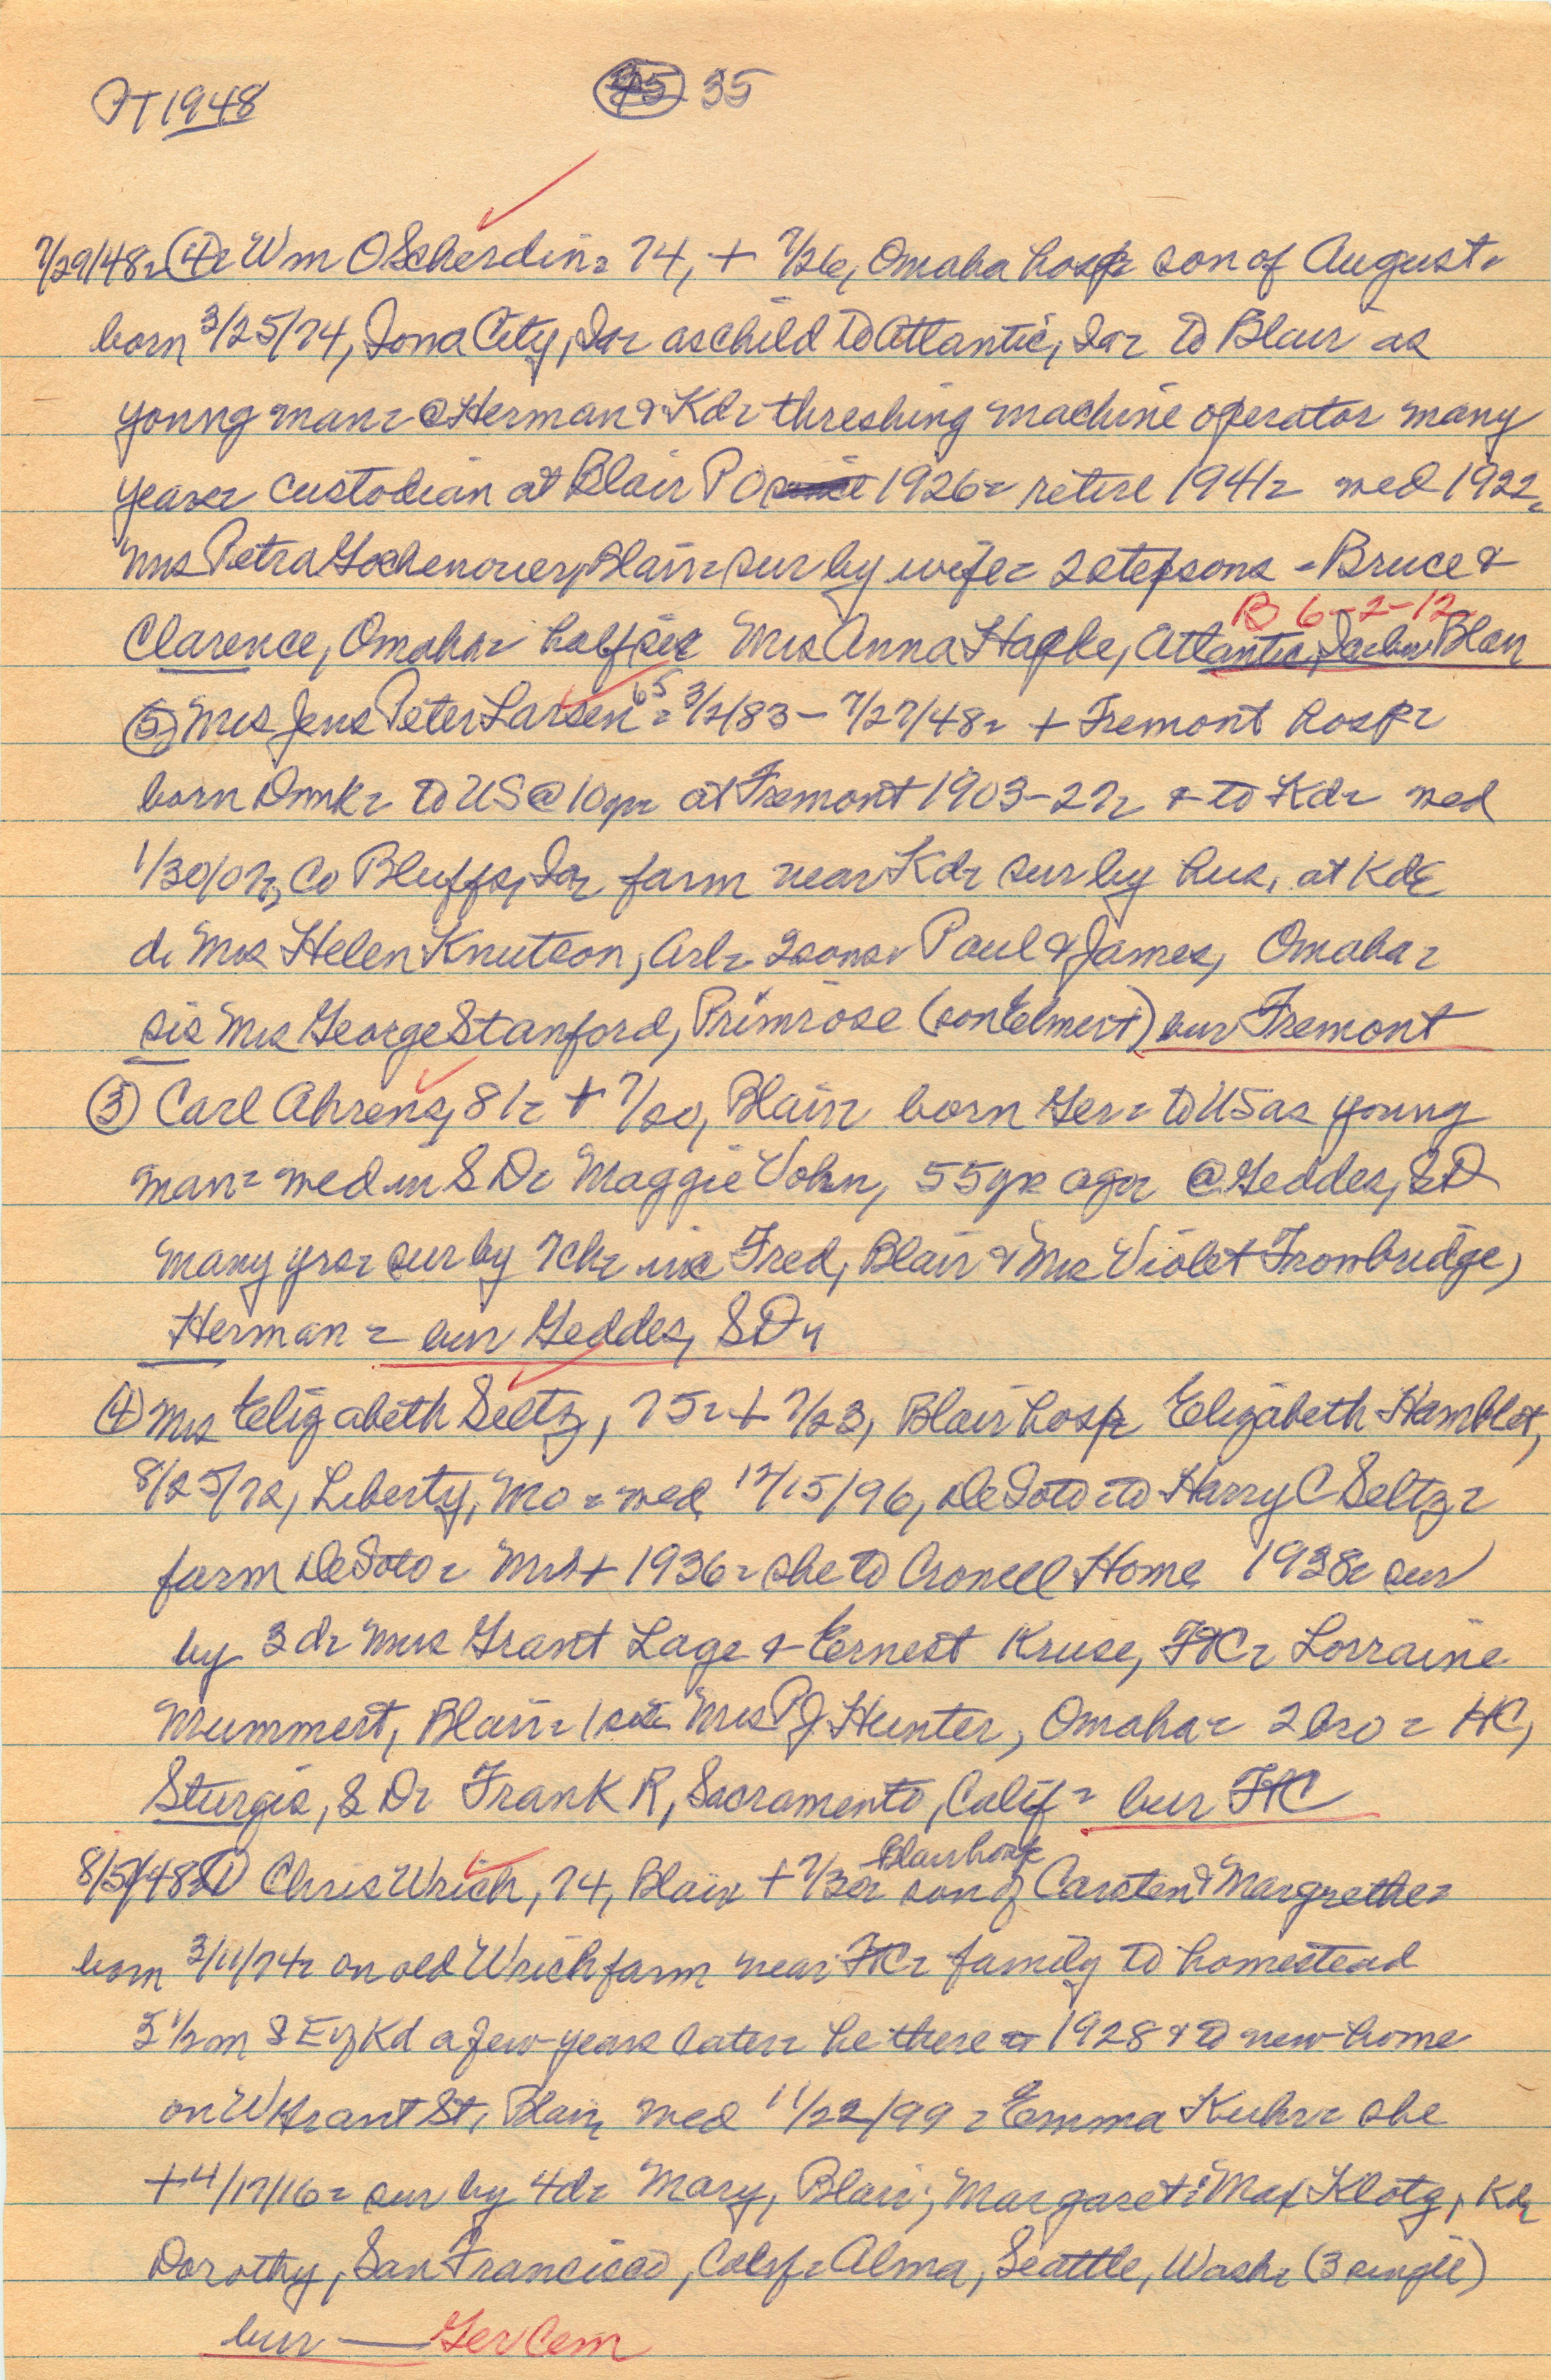 PT 1948 35
7/29/48= Wm O Scherdin= 74, + 7/26, Omaha hosp= son of August=
born 3/25/74, Iowa City, Ia= as child to Atlantic, Ia= to Blair as
young man= @ Herman & Kd= threshing machine operator many
years= custodian at Blair PO 1926= retire 1941= med 1922=
Mrs Petra Gochenouer, Blair= sur by wife= 2 stepsons - Bruce &
B 6-2-12
Clarence, Omaha= half sis Mrs Anna Hapke, Atlantic, Ia= bur Blair
65
② Mrs Jens Peter Larsen = 3/2/83 - 7/27/48= + Fremont hosp=
born Dnmk= to US @ 10yr= at Fremont 1903-27= & to Kd= med
1/30/07, Co Bluffs, Ia= farm near Kd= sur by hus, at Kd=
d= Mrs Helen Knutson, Arl= 2 sons= Paul & James, Omaha=
sis Mrs George Stanford, Primrose (son Elmer +) bur Fremont
③ Carl Ahrens, 81= + 7/20, Blair= born Ger= to US as young
man= med in S D= Maggie Vohn, 55 yrs ago= @ Geddes, SD
many yrs= sur by 7 ch= inc Fred, Blair & Mrs Violet Trowbridge,
Herman = bur Geddes, SD
④ Mrs Elizabeth Seltz, 75= + 7/23, Blair hosp= Elizabeth Hamblet,
8/25/72, Liberty, Mo = med 12/15/96, DeSoto= to Harry C Seltz=
farm DeSoto= Mr S + 1936= she to Crowell Home 1938= sur
by 3 d= Mrs Grant Lage & Ernest Kruse, FtC= Lorraine
Mummert, Blair= 1 sis Mrs P J Hunter, Omaha= 2 bro = HC,
Sturgis, S D= Frank R, Sacramento, Calif= bur FtC
Blair hosp
8/5/48= ① Chris Wrich, 74, Blair + 7/30= son of Carsten & Margrethe=
born 3/11/74= on old Wrich farm near FtC= family to homestead
5 1/2 m SE of Kd a few years later= he there to 1928 & to new home
on W Grant St, Blair, med 11/22/99= Emma Kuhr= she
+ 4/17/16= sur by 4 d= Mary, Blair; Margaret= Max Klotz, Kd=
Dorothy, San Francisco, Calif= Alma, Seattle, Wash= (3 single)
bur — Ger Cem